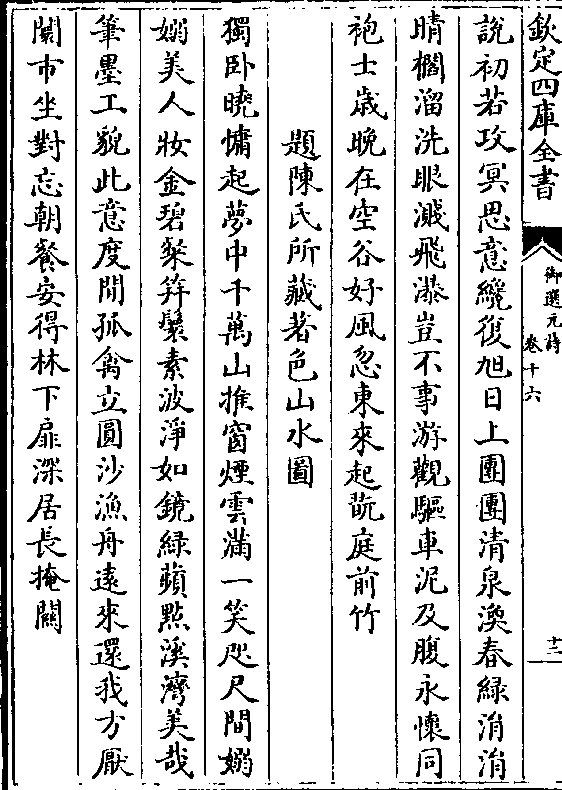 欽定四庫全書
御選元詩
卷十六
十二
說初若攻冥思意纔復旭日上團團清泉渙春綠涓涓
晴櫩溜洗眼濺飛瀑豈不事游觀驅車泥及腹永懷同
袍士歳晩在空谷好風忽東來起翫庭前竹
題陳氏所藏著色山水圖
獨卧曉慵起夢中千萬山推窗煙雲滿一笑咫尺間嫋
嫋美人妝金碧粲笄鬟素波淨如鏡綠蘋㸃溪灣美哉
筆墨工貌此意度閒孤禽立圓沙漁舟遠來還我方厭
闤市坐對忘朝餐安得林下扉深居長掩闗